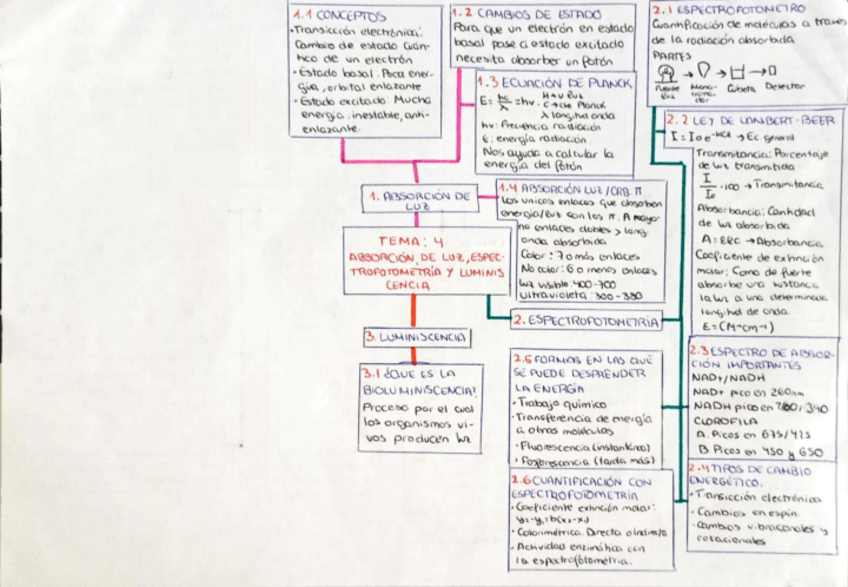 1.1 CONCEPTOS
• Transicción electrónica:
Cambio de estado cuán-
tico de un electrón
• Estado basal: Poca ener-
gía, orbital enlazante
• Estado excitado: Mucha
energía, inestable, anti-
enlazante.
1.2 CAMBIOS DE ESTADO
Para que un electrón en estado
basal pase a estado excitado
necesita absorber un fotón
1.3 ECUACIÓN DE PLANCK
E= hc/λ =hv.
C → cte Planck
λ longitud onda
hv: Frecuencia radiación
E: energía radiación
Nos ayuda a calcular la
energía del fotón
1. ABSORCIÓN DE
LUZ
1.4 ABSORCIÓN LUZ/ORB. π
Los unicos enlaces que absorben
energía/luz son los π. A mayor
no enlaces dobles > long
onda absorbida
Color: 7 o más enlaces
No color: 6 o menos enlaces
Luz visible: 400-700
Ultravioleta: 300-380
TEMA: 4
ABSORCIÓN DE LUZ, ESPEC-
TROFOTOMETRÍA Y LUMINIS
CENCIA
2. ESPECTROFOTOMETRÍA
2.1 ESPECTROFOTOMETRO
Cuantificación de moléculas a través
de la radiación absorbida
PARTES
Fuente luz
Mono-
croma-
dor
Cubeta
Detector
2.2 LEY DE LAMBERT-BEER
I = Io e → Ec general
Transmitancia: Porcentaje
de luz transmitida
I/Io · 100 → Transmitancia
Absorbancia: Cantidad
de luz absorbida
A = EBC → Absorbancia
Coeficiente de extinción
molar: Como de fuerte
absorbe una sustancia
la luz a una determinada
longitud de onda.
E = (M⁻¹cm⁻¹)
2.3 ESPECTRO DE ABSOR-
CIÓN IMPORTANTES
NAD+/NADH
NAD+ pico en 260nm
NADH pico en 260/340
CLOROFILA
A. Picos en 675/425
B. Picos en 450 y 650
2.4 TIPOS DE CAMBIO
ENERGÉTICO.
• Transicción electrónica
• Cambios en espín.
• Cambios vibracionales y
rotacionales
2.5 FORMAS EN LAS QUE
SE PUEDE DESPRENDER
LA ENERGÍA
• Trabajo químico
• Transferencia de energía
a otras moléculas
• Fluorescencia (instantánea)
• Fosforescencia (tarda más)
2.6 CUANTIFICACIÓN CON
ESPECTROFOTOMETRÍA
• Coeficiente extinción molar:
y₂-y₁=b(x₂-x₁)
• Colorimétrica. Directa o indirecta
• Actividad enzimática con
la espectrofotometría.
3. LUMINISCENCIA
3.1 ¿QUE ES LA
BIOLUMINISCENCIA?
Proceso por el cual
los organismos vi-
vos producen luz